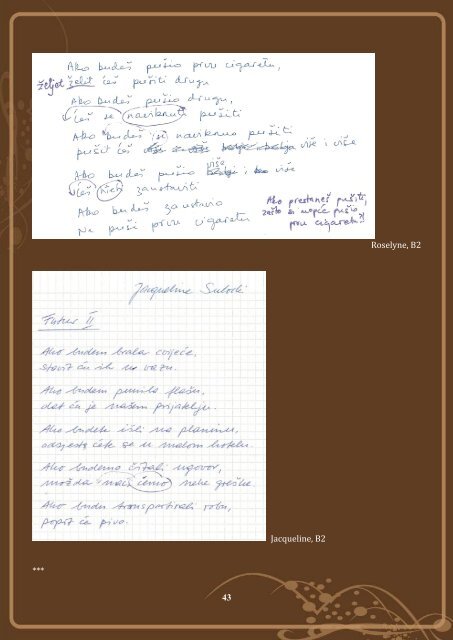 Ako budeš pušio prvu cigaretu,
željet želit ćeš pušiti drugu
Ako budeš pušio drugu,
ćeš se naviknuti pušiti
Ako budeš si naviknuo pušiti
pušit ćeš više i više
Ako budeš pušio više i više
ćeš htjeti zaustaviti
Ako budeš zaustavio
Ne puši prvu cigaretu
Ako prestaneš pušiti,
zašto si uopće pušio
prvu cigaretu?!
Roselyne, B2
Jacqueline
Futur II
Ako budem brala cvijeće,
stavit ću ih na vazu.
Ako budem punila flašu,
dat ću je našem prijatelju.
Ako budete išli na planinu,
odsjest ćete se u malom hotelu.
Ako budemo čitali ugovor,
možda naći ćemo neke greške.
Ako budu transportirali robu,
popit ću pivo.
Jacqueline, B2
***
43